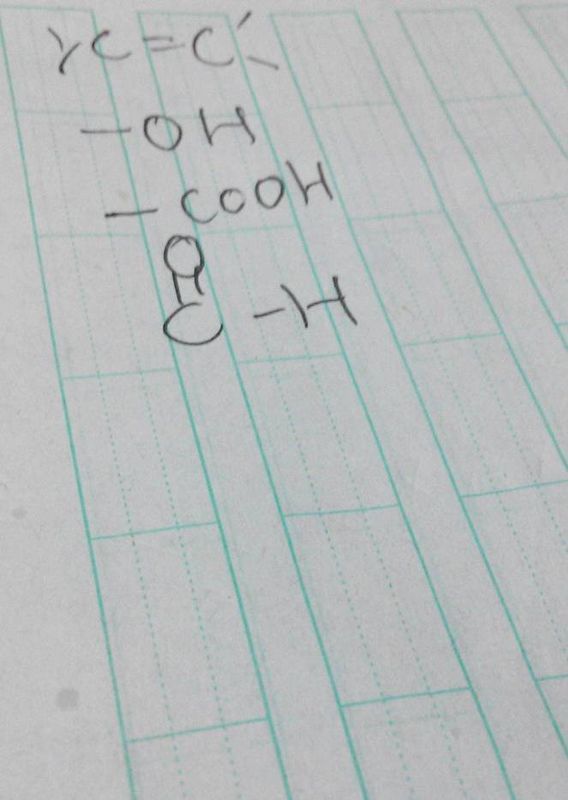 >C=C<
-OH
-COOH
O
||
C-H